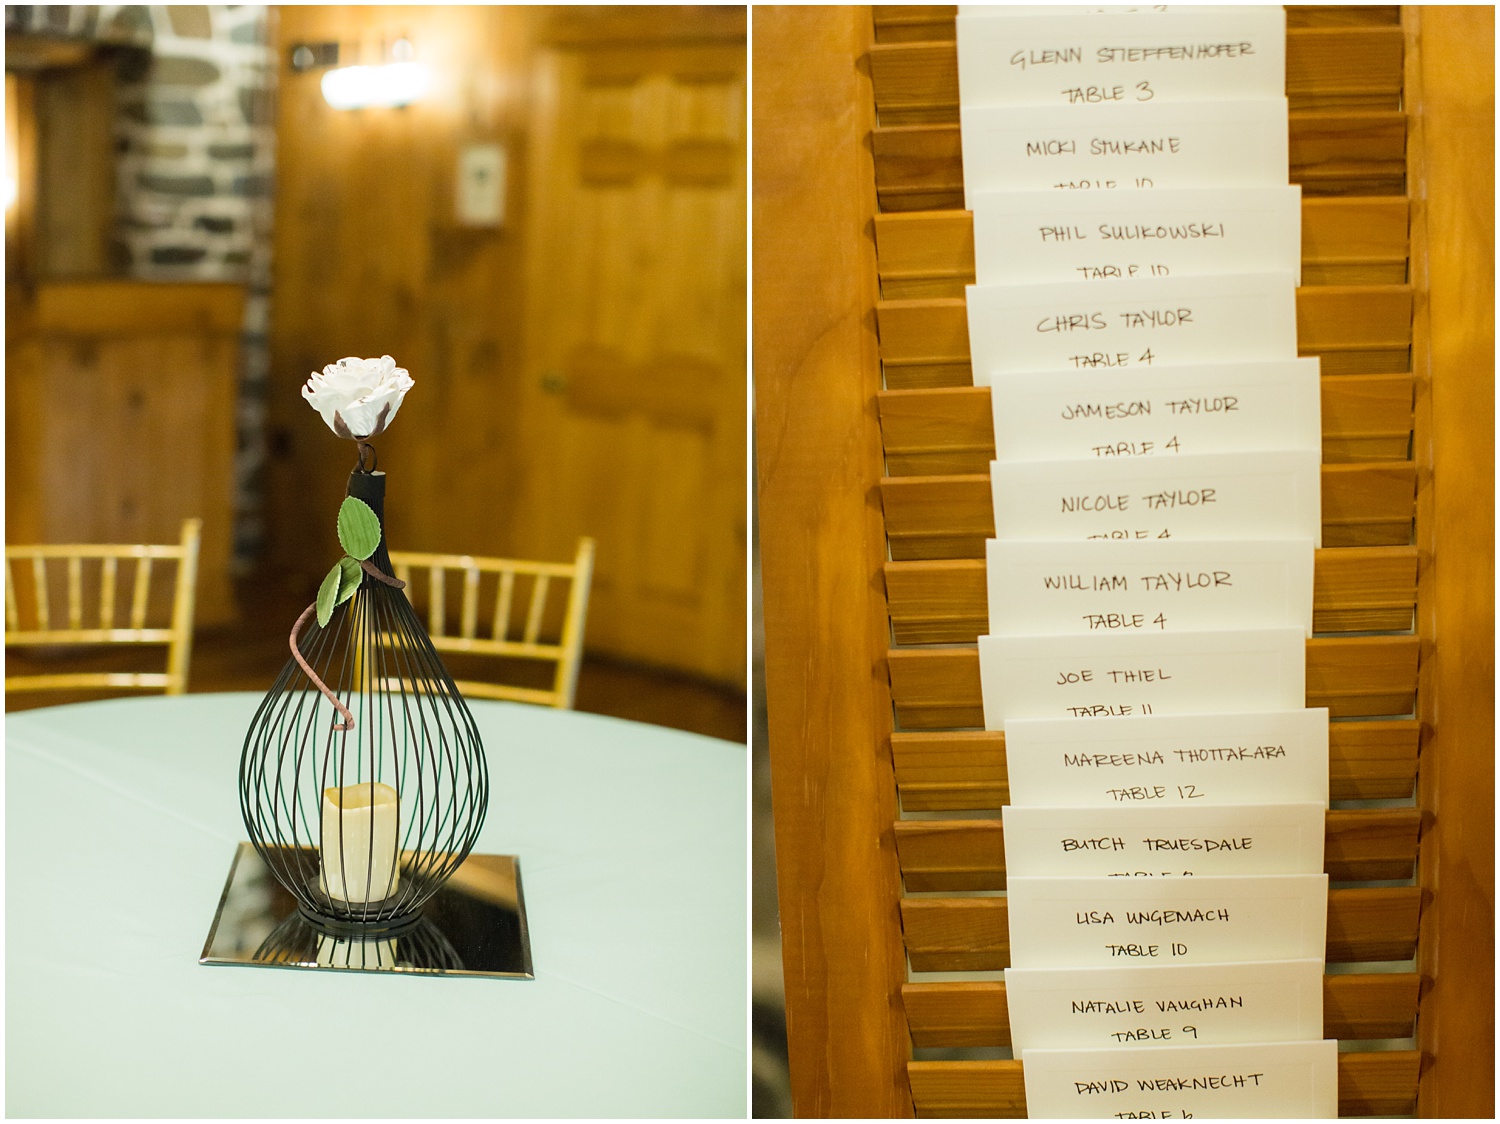 GLENN STIEFFENHOFER
TABLE 3
MICKI STUKANE
TABLE 10
PHIL SULIKOWSKI
TABLE 10
CHRIS TAYLOR
TABLE 4
JAMESON TAYLOR
TABLE 4
NICOLE TAYLOR
TABLE 4
WILLIAM TAYLOR
TABLE 4
JOE THIEL
TABLE 11
MAREENA THOTTAKARA
TABLE 12
BUTCH TRUESDALE
TABLE
LISA UNGEMACH
TABLE 10
NATALIE VAUGHAN
TABLE 9
DAVID WEAKNECHT
TABLE 6